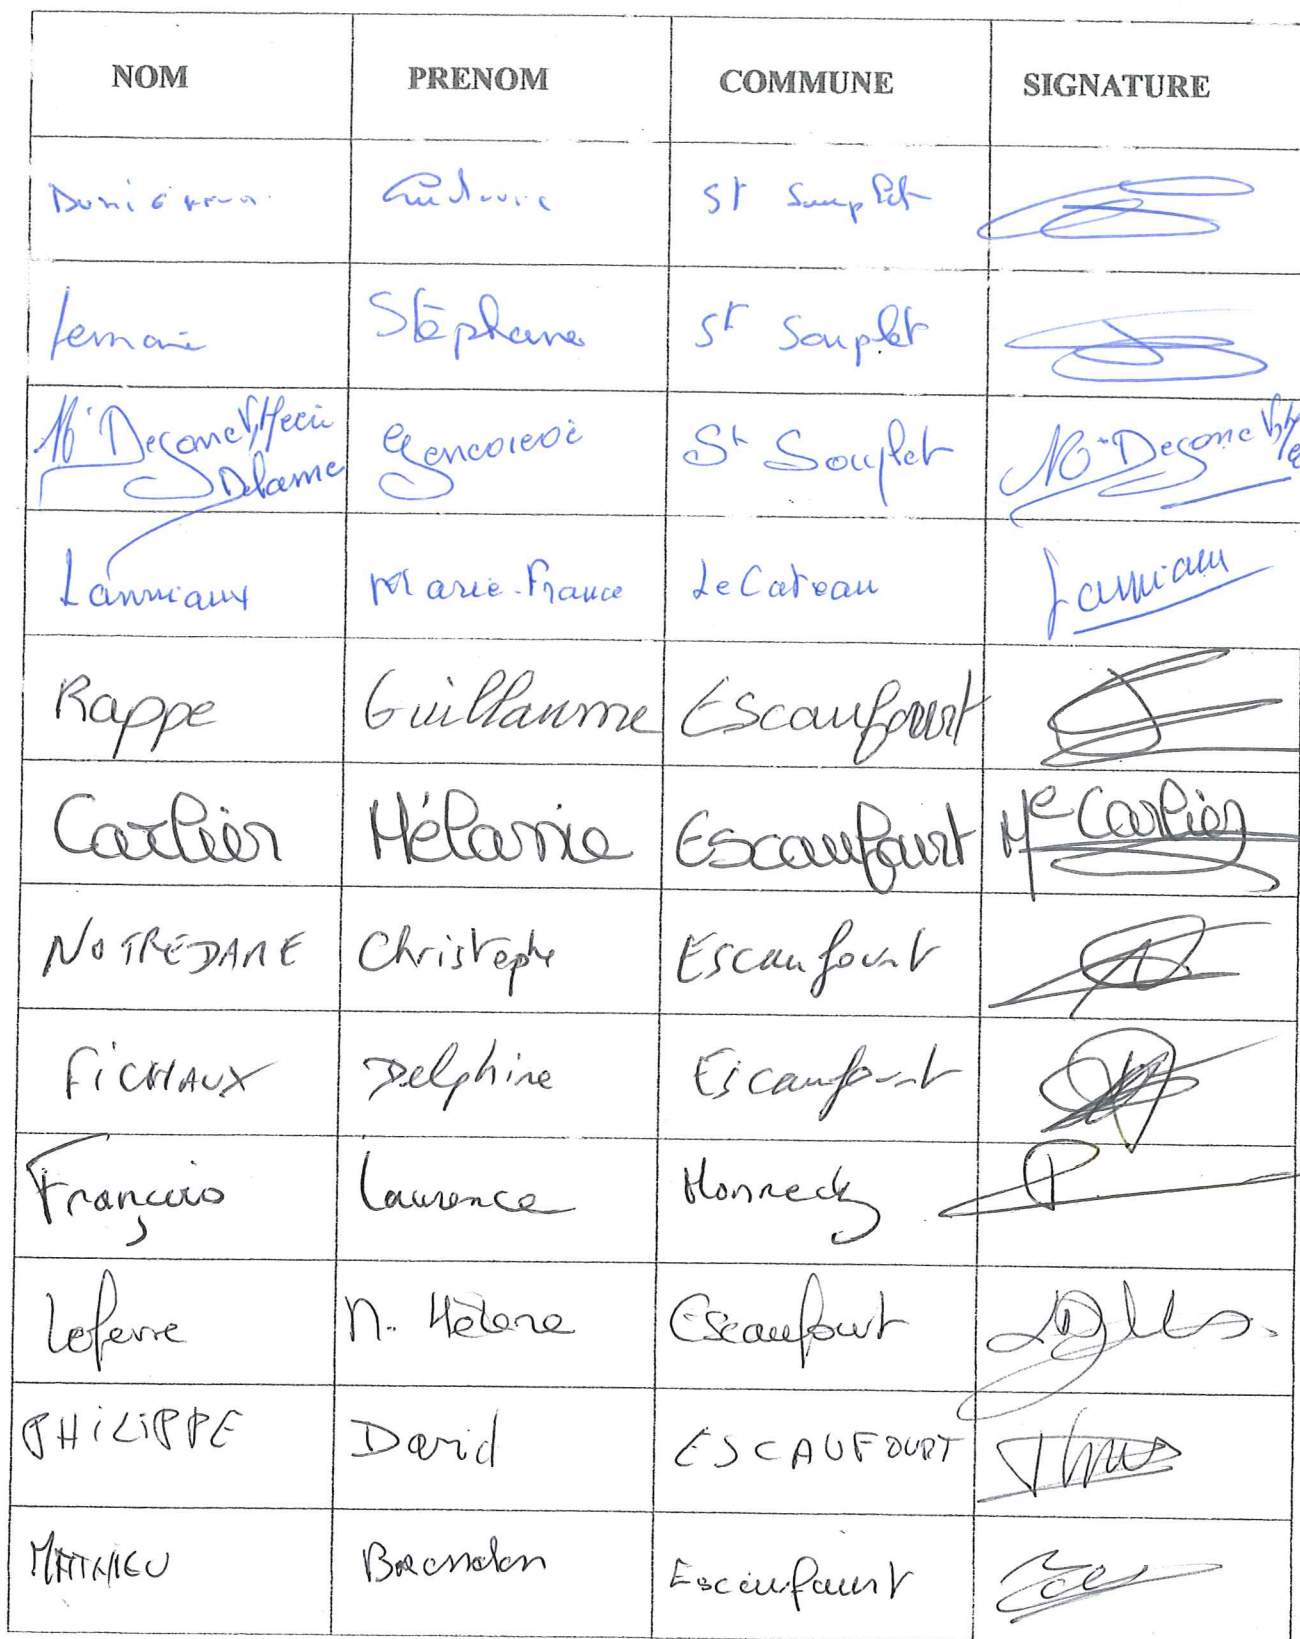 NOM PRENOM COMMUNE SIGNATURE
St Souplet
Lemaire Stéphane St Souplet
Delame St Souplet
Lanniaux Marie-France Le Cateau
Rappe Guillaume Escaufourt
Carlier Mélanie Escaufourt Me Carlier
NOTREDAME Christophe Escaufourt
FICHAUX Delphine Escaufourt
François Laurence Honnechy
Lefevre M. Hélène Escaufourt
PHILIPPE David ESCAUFOURT
MATHIEU Brandon Escaufourt